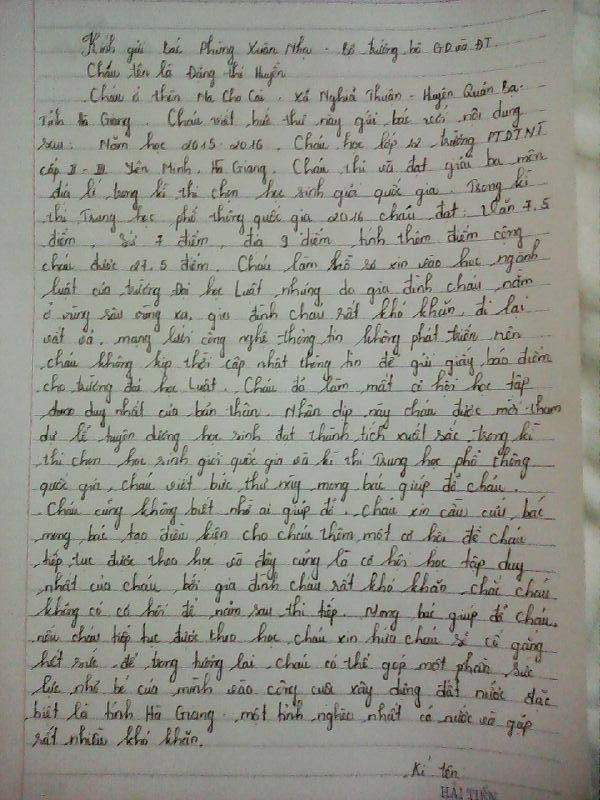 Kính gửi bác Phùng Xuân Nhạ - Bộ trưởng bộ GD và ĐT.
Cháu tên là Đặng Thị Huyền
Cháu ở thôn Na Cho Cai - Xã Nghĩa Thuận - Huyện Quản Bạ -
Tỉnh Hà Giang. Cháu viết bức thư này gửi bác với nội dung
sau: Năm học 2015-2016. Cháu học lớp 12 trường PTDTNT
cấp II - III Yên Minh. Hà Giang. Cháu thi và đạt giải ba môn
địa lí trong kì thi chọn học sinh giỏi quốc gia. Trong kì
thi Trung học phổ thông quốc gia 2016 cháu đạt: Văn 7,5
điểm, Sử 7 điểm, địa 9 điểm, tính thêm điểm cộng
cháu được 27,5 điểm. Cháu làm hồ sơ xin vào học ngành
luật của trường Đại học Luật, nhưng do gia đình cháu nằm
ở vùng sâu vùng xa, gia đình cháu rất khó khăn, đi lại
vất vả, mạng lưới công nghệ thông tin không phát triển nên
cháu không kịp thời cập nhật thông tin để gửi giấy báo điểm
cho trường đại học Luật. Cháu đã làm mất cơ hội học tập
được duy nhất của bản thân. Nhân dịp này cháu được mời tham
dự lễ tuyên dương học sinh đạt thành tích xuất sắc trong kì
thi chọn học sinh giỏi quốc gia và kì thi Trung học phổ thông
quốc gia, cháu viết bức thư này mong bác giúp đỡ cháu.
Cháu cũng không biết nhờ ai giúp đỡ. Cháu xin cầu cứu bác
mong bác tạo điều kiện cho cháu thêm một cơ hội để cháu
tiếp tục được theo học và đây cũng là cơ hội học tập duy
nhất của cháu, bởi gia đình cháu rất khó khăn, chắc cháu
không có cơ hội để năm sau thi tiếp. Mong bác giúp đỡ cháu,
nếu cháu tiếp tục được theo học cháu xin hứa cháu sẽ cố gắng
hết sức để trong tương lai cháu có thể góp một phần sức
lực nhỏ bé của mình vào công cuộc xây dựng đất nước đặc
biệt là tỉnh Hà Giang một tỉnh nghèo nhất cả nước và gặp
rất nhiều khó khăn.
Kí tên
HẢI TIẾN